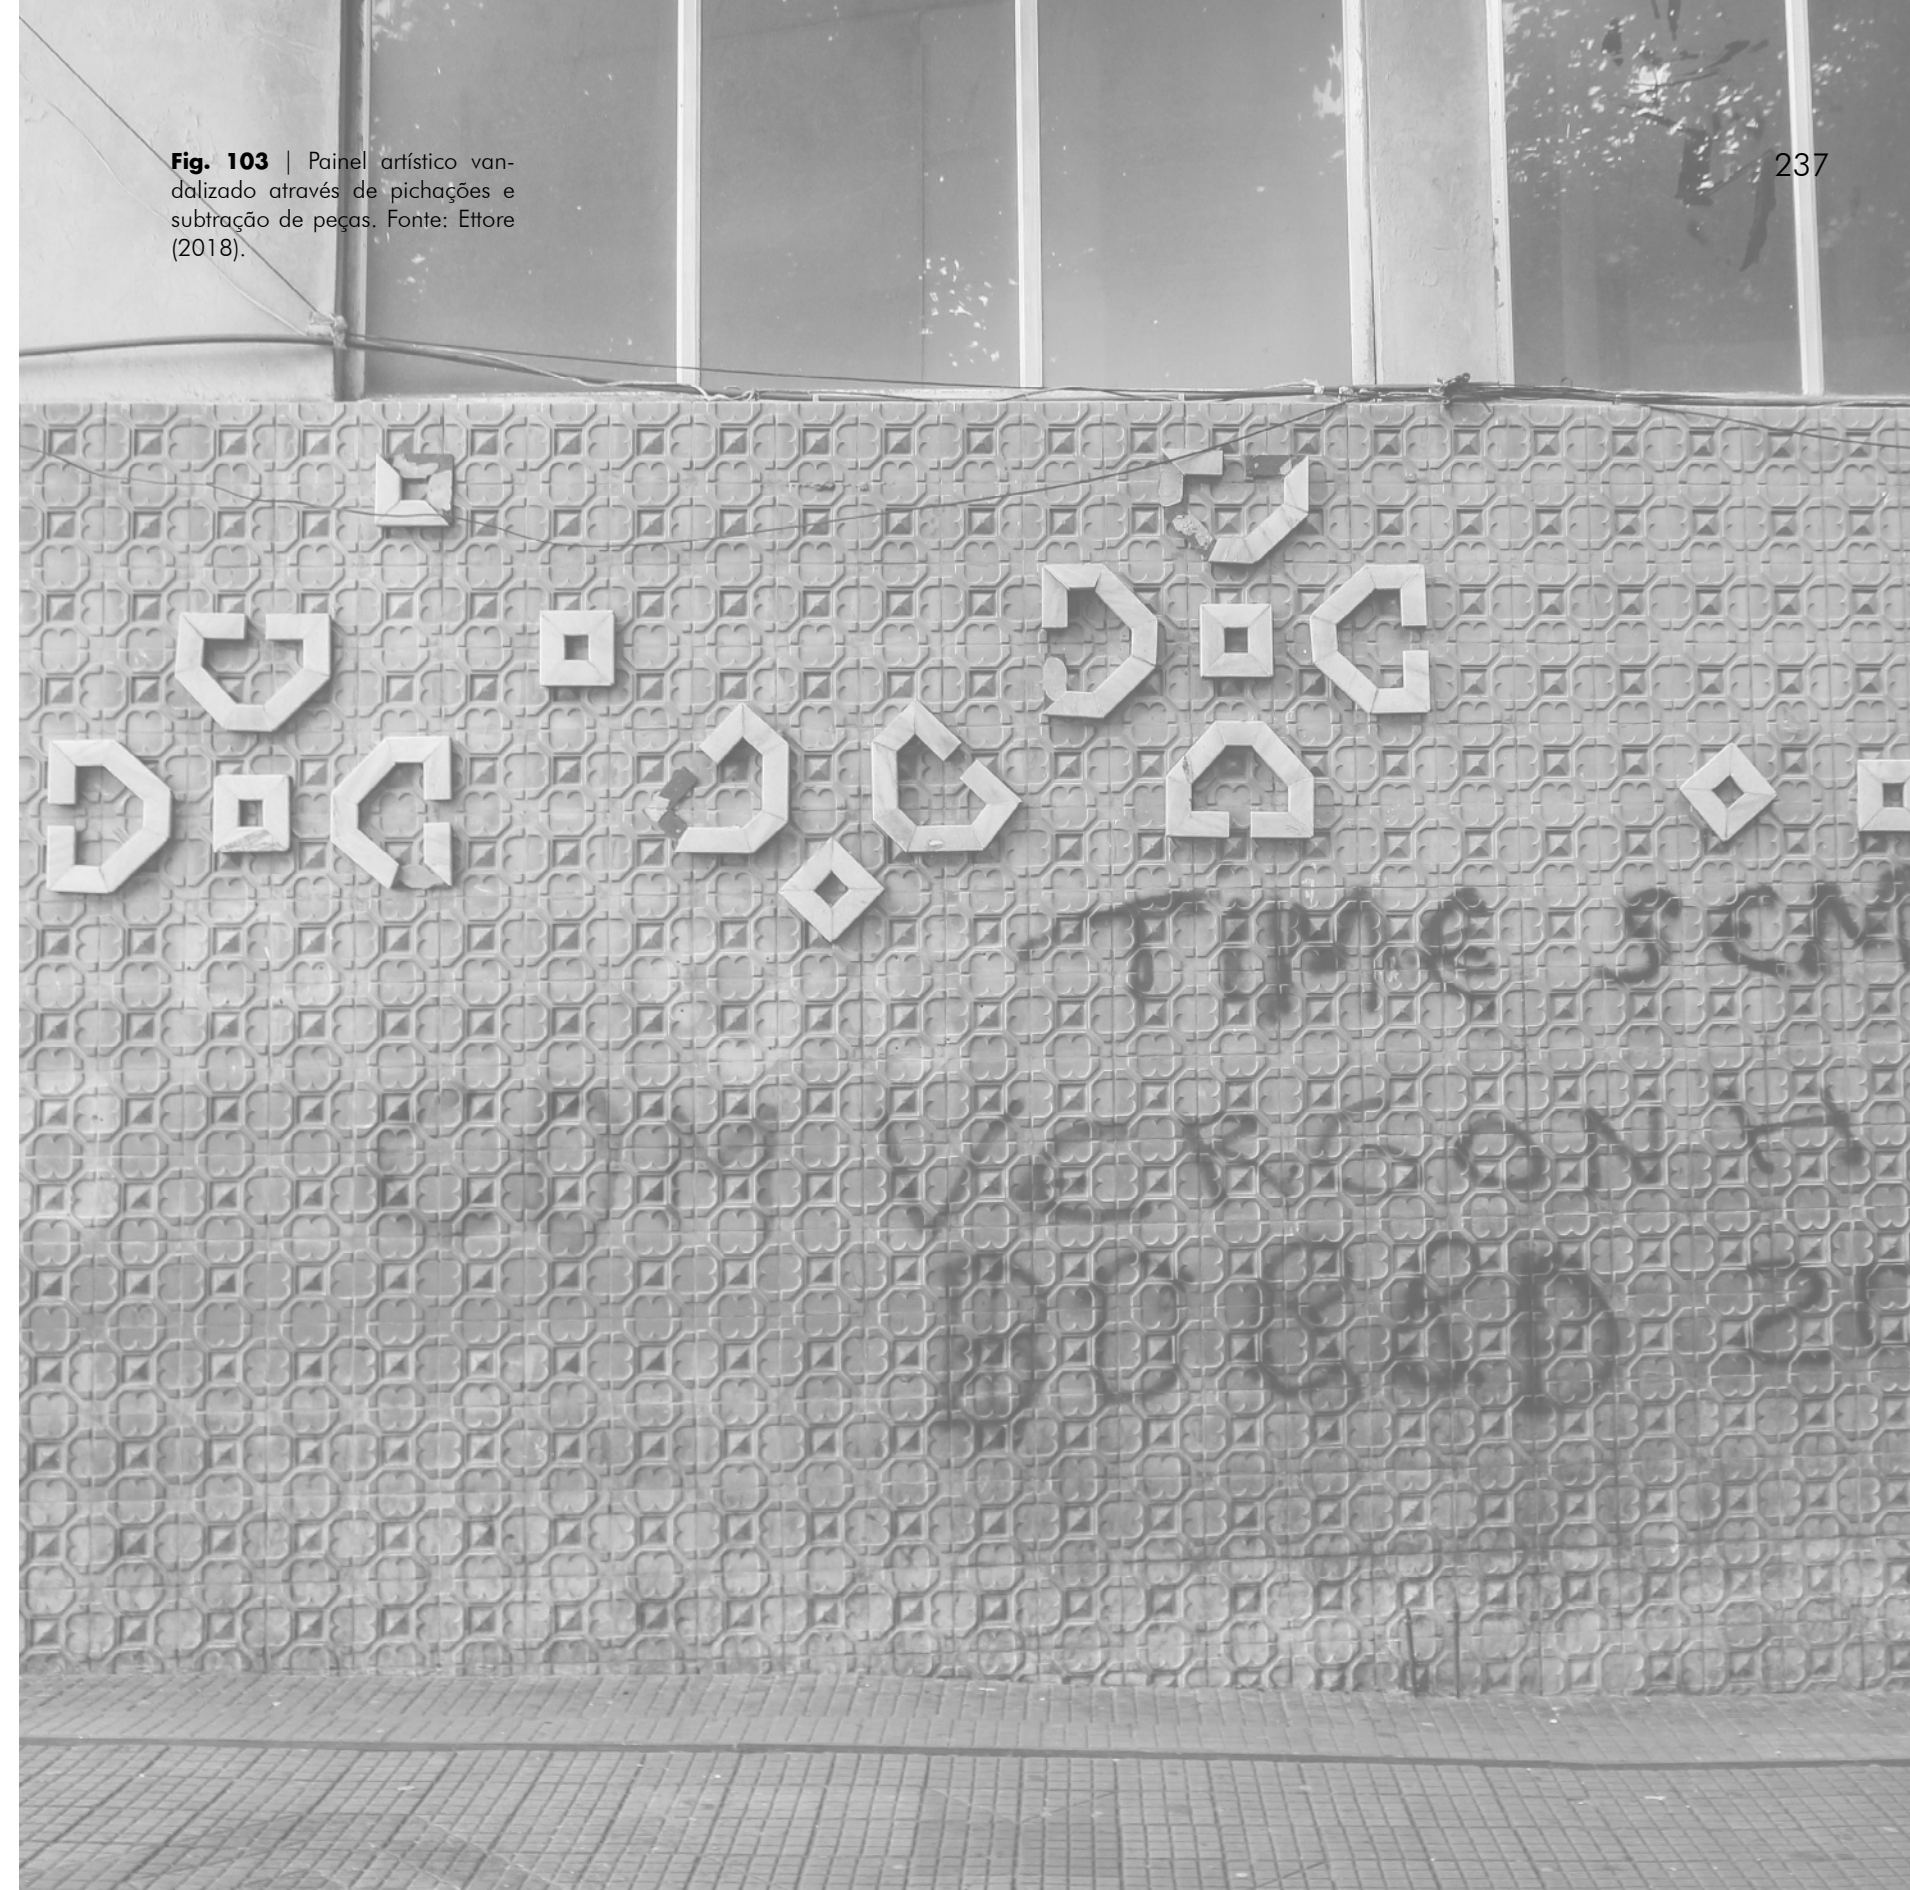 Fig. 103 | Painel artístico van-
dalizado através de pichações e
subtração de peças. Fonte: Ettore
(2018).
237
TIME SEM
VERGONH